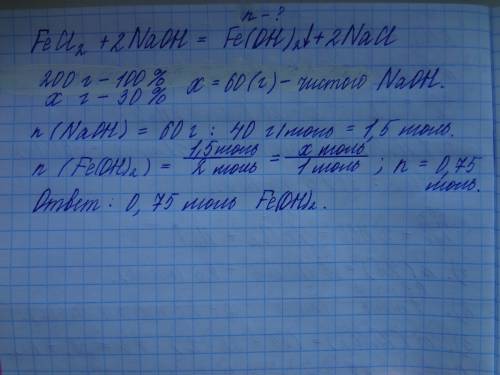 n - ?
FeCl₂ + 2NaOH = Fe(OH)₂↓ + 2NaCl
200 г - 100 %
x г - 30 % x = 60 (г) - чистого NaOH.
n (NaOH) = 60 г : 40 г/моль = 1,5 моль.
n (Fe(OH)₂) = 1,5 моль / 2 моль = x моль / 1 моль ; n = 0,75 моль.
Ответ: 0,75 моль Fe(OH)₂.